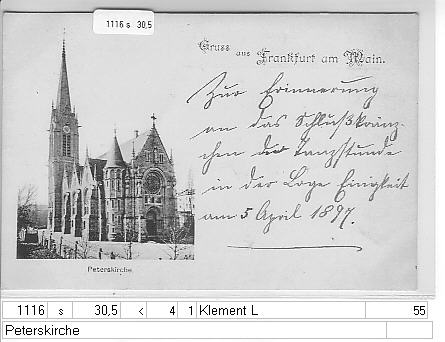 1116 s 30,5
Gruss aus Frankfurt am Main.
Zur Erinnerung
an das Schlußkränz-
chen der Tanzstunde
in der Loge Einigkeit
am 5 April 1897.
Peterskirche
1116 s 30,5 < 4 1 Klement L 55
Peterskirche